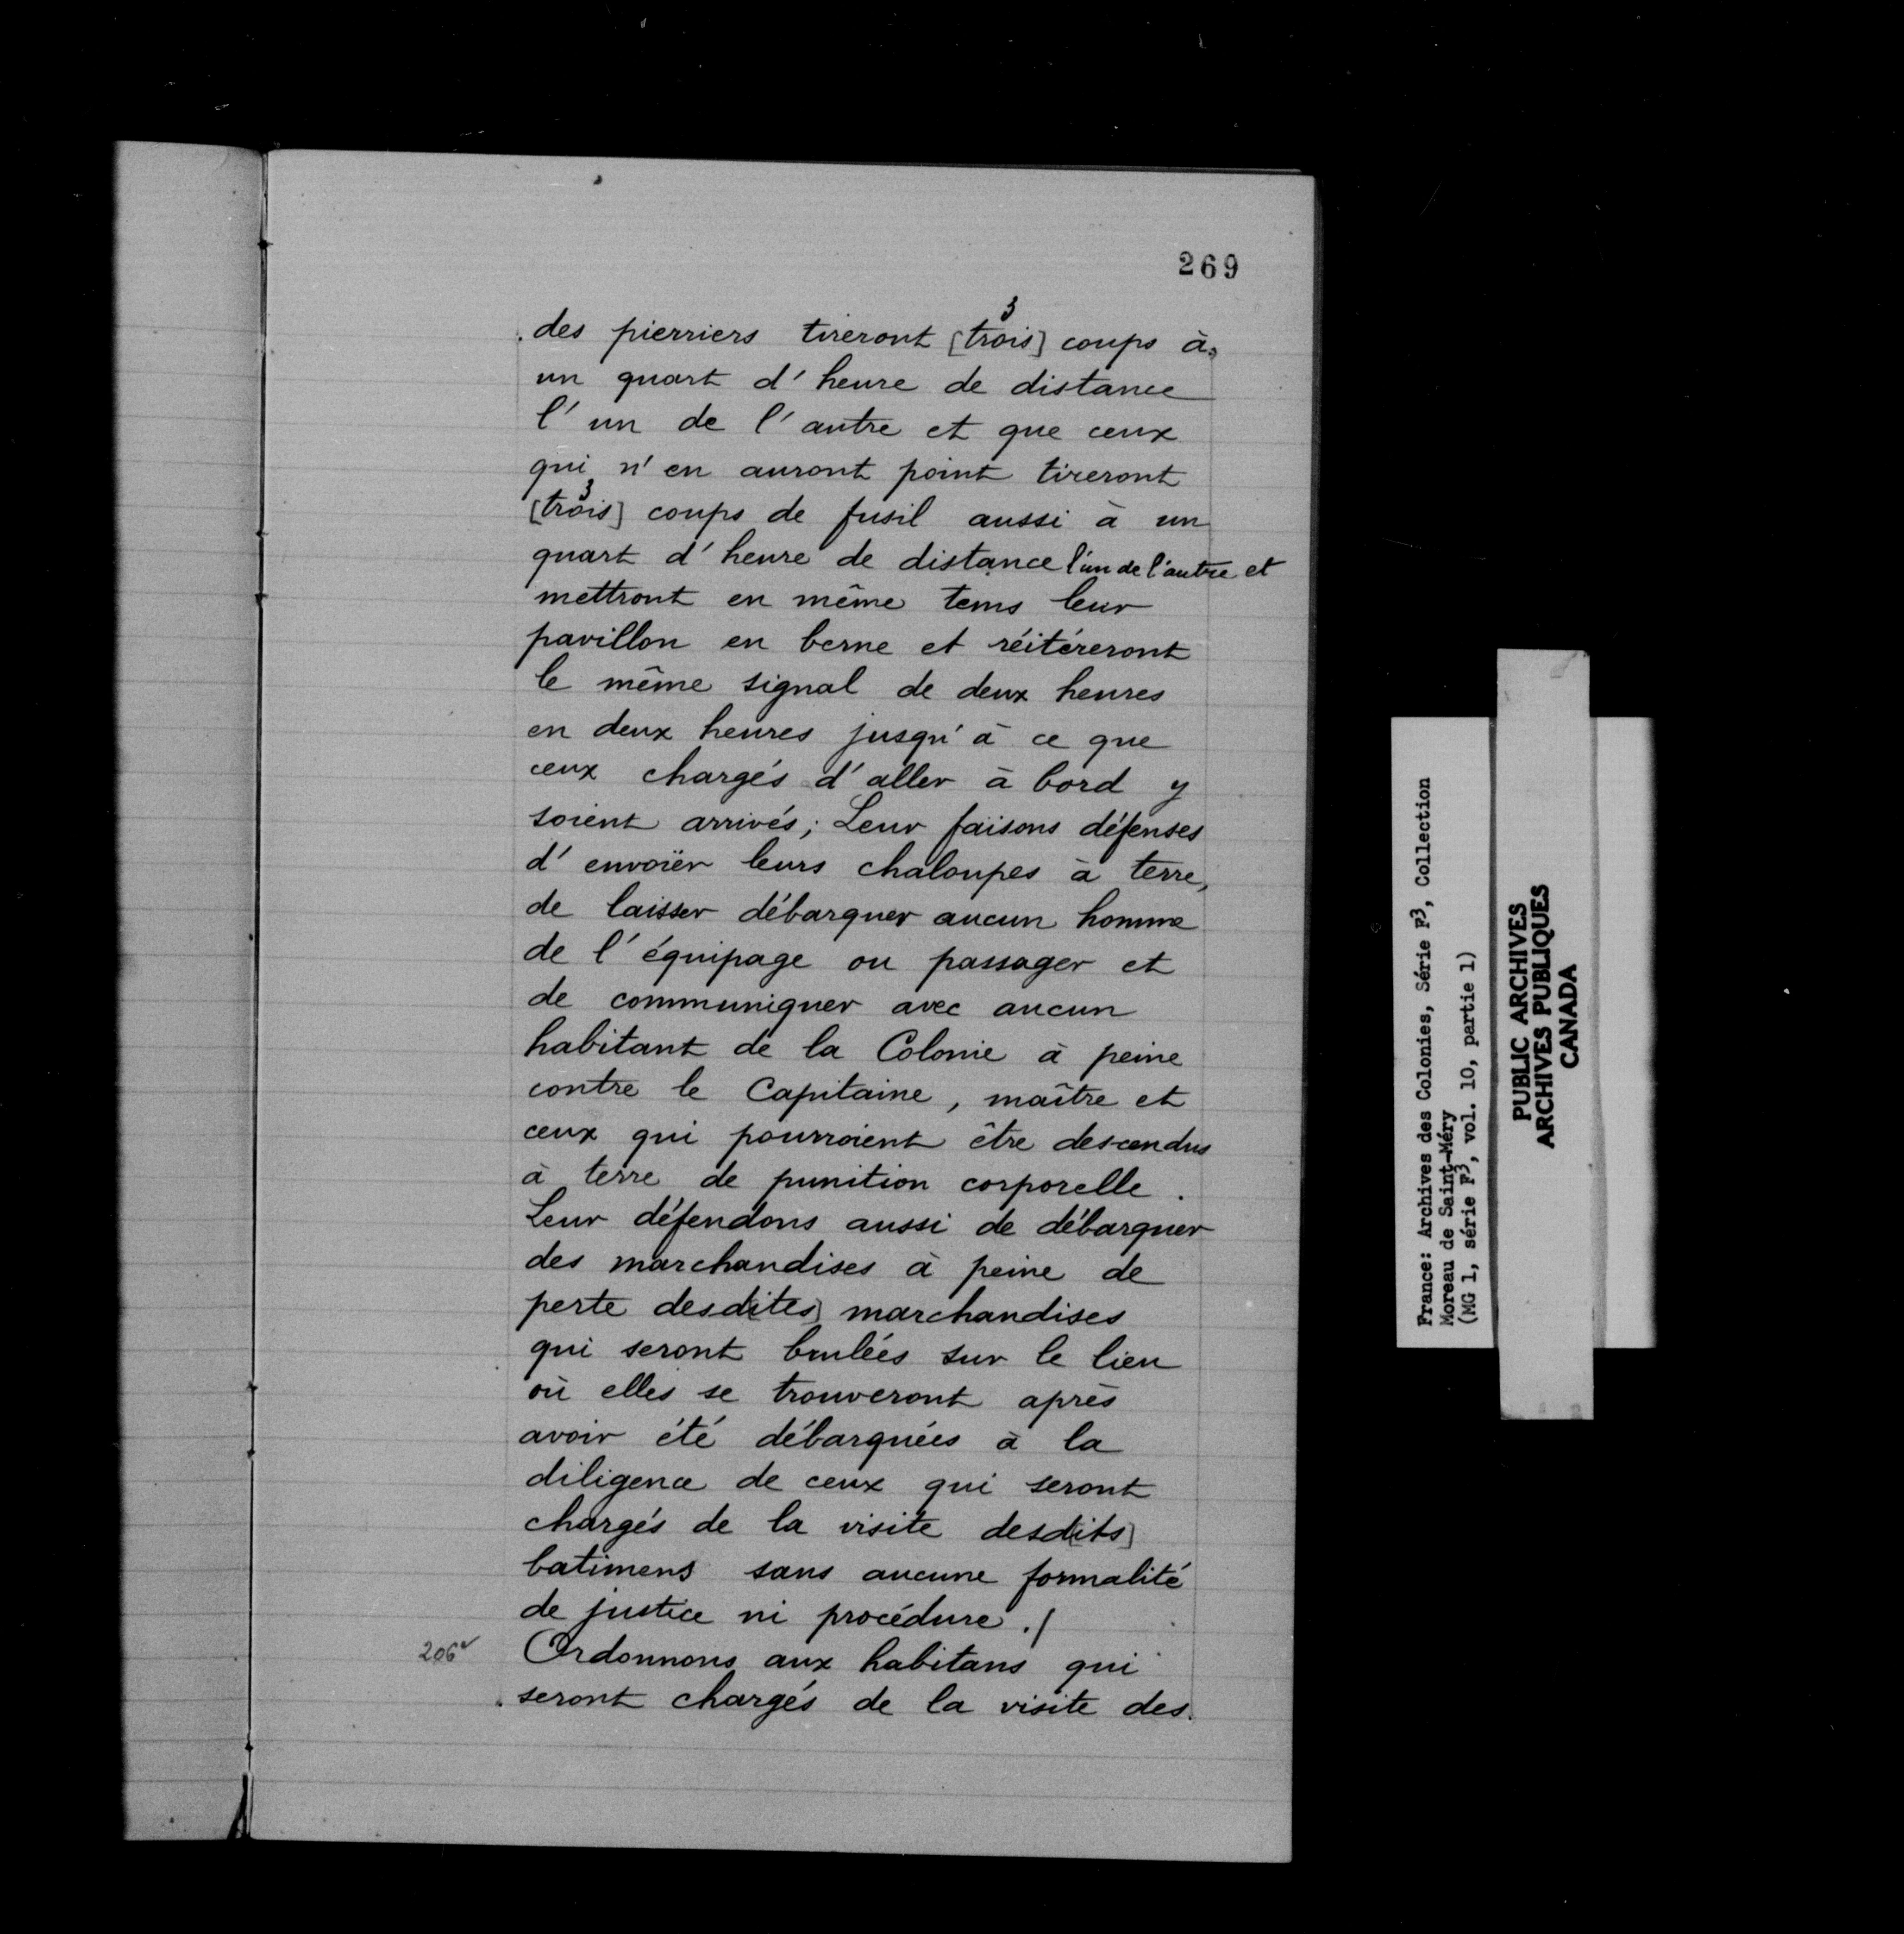 269
des pierriers tireront [trois] 3 coups à
un quart d'heure de distance
l'un de l'autre et que ceux
qui n'en auront point tireront
[trois] 3 coups de fusil aussi à un
quart d'heure de distance l'un de l'autre et
mettront en même tems leur
pavillon en berne et réitéreront
le même signal de deux heures
en deux heures jusqu'à ce que
ceux chargés d'aller à bord y
soient arrivés; Leur faisons défenses
d'envoïer leurs chaloupes à terre,
de laisser débarquer aucun homme
de l'équipage ou passager et
de communiquer avec aucun
habitant de la Colonie à peine
contre le Capitaine, maître et
ceux qui pourroient être descendus
à terre de punition corporelle.
Leur défendons aussi de débarquer
des marchandises à peine de
perte desd[ites] marchandises
qui seront brulées sur le lieu
où elles se trouveront après
avoir été débarquées à la
diligence de ceux qui seront
chargés de la visite desd[its]
batimens sans aucune formalité
de justice ni procédure./
206v Ordonnons aux habitans qui
seront chargés de la visite des
France: Archives des Colonies, Série F3, Collection
Moreau de Saint-Méry
(MG 1, série F3, vol. 10, partie 1)
PUBLIC ARCHIVES
ARCHIVES PUBLIQUES
CANADA